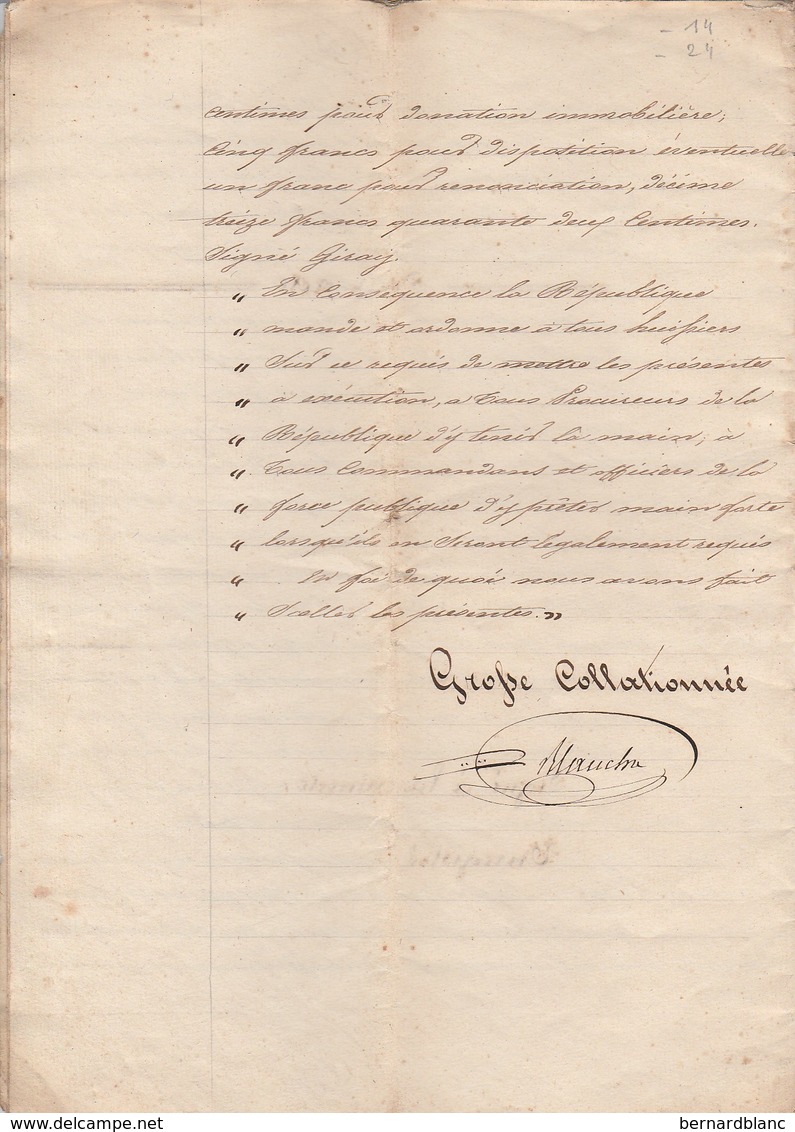 - 14
- 24
centimes pour donation immobilière;
Cinq francs pour disposition éventuelle
un franc pour renonciation, décime
treize francs quarante deux Centimes.
Signé Giray.
" En Consequence la République
" mande et ordonne à tous huissiers
" Sur ce requis de mettre les présentes
" à exécution, a Tous Procureurs de la
" République d'y tenir la main; à
" Tous Commandans et officiers de la
" force publique d'y prêter main forte
" lorsqu'ils en Seront légalement requis
" En foi de quoi nous avons fait
" Sceller les présentes."
Grosse Collationnée
delcampe.net
bernardblanc